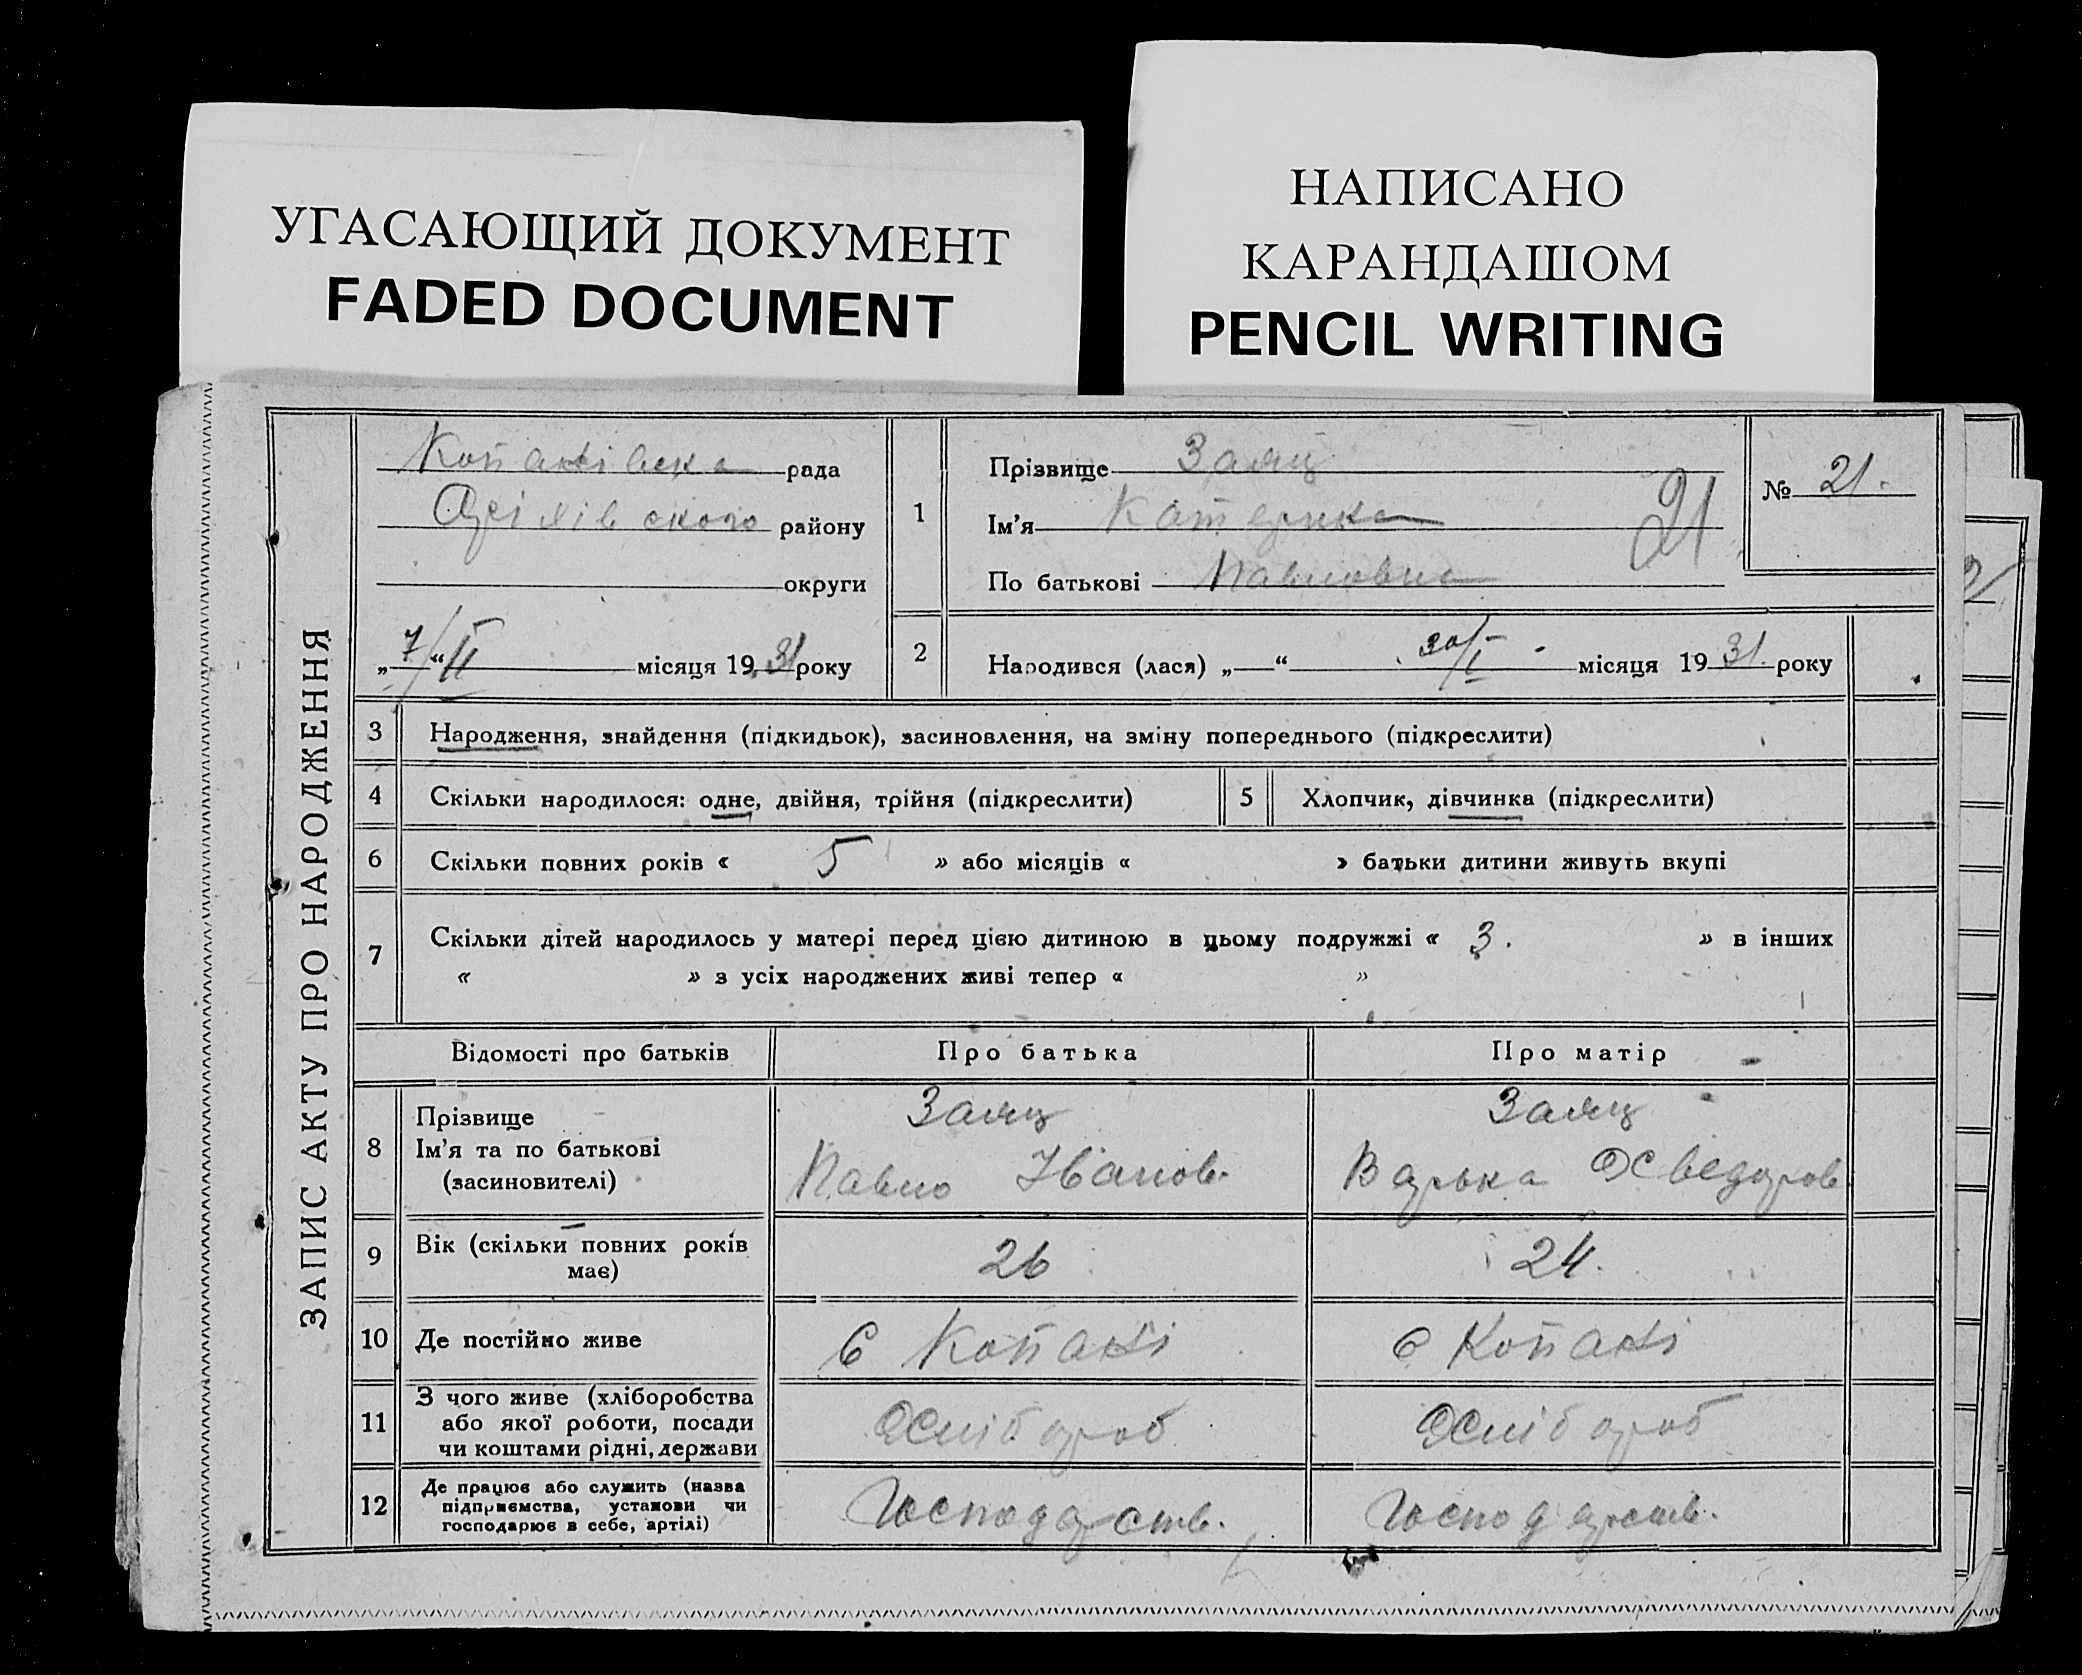 УГАСАЮЩИЙ ДОКУМЕНТ
FADED DOCUMENT
НАПИСАНО
КАРАНДАШОМ
PENCIL WRITING
ЗАПИС АКТУ ПРО НАРОДЖЕННЯ
Копаківська рада
району
округи
„ 7/ “ II місяця 19 31 року
1 Прізвище Заяц
Ім’я Катерина
По батькові Павловна
21
№ 21.
2 Народився (лася) „ “ 30/I місяця 19 31 року
3 Народження, знайдення (підкидьок), засиновлення, на зміну попереднього (підкреслити)
4 Скільки народилося: одне, двійня, трійня (підкреслити) 5 Хлопчик, дівчинка (підкреслити)
6 Скільки повних років « 5 » або місяців « » батьки дитини живуть вкупі
7 Скільки дітей народилось у матері перед цією дитиною в цьому подружжі « 3. » в інших
« » з усіх народжених живі тепер « »
Відомості про батьків Про батька Про матір
8 Прізвище Заяц Заяц
Ім’я та по батькові Павло Іванов. Варька Хведоров
(засиновителі)
9 Вік (скільки повних років має) 26 24.
10 Де постійно живе С Копакі с Копакі
11 З чого живе (хліборобства Хлібороб Хлібороб
або якої роботи, посади
чи коштами рідні, держави
12 Де працює або служить (назва Господарств. Господарств.
підприємства, установи чи
господарює в себе, артілі)